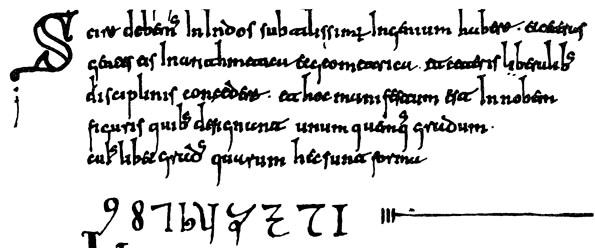 Scire debemꝰ In Indos subtilissimũ Ingenium habere · et ceteras
gentes eis In arithmetica et geometrica · et ceteris liberalibꝰ
disciplinis concedere · et hoc manifestum est In nobem
figuris quibꝰ designant unum quemqꝫ gradum ·
cuiꝰlibet gradꝰ quarum hec sunt forma
9 8 7 6 5 4 3 2 1